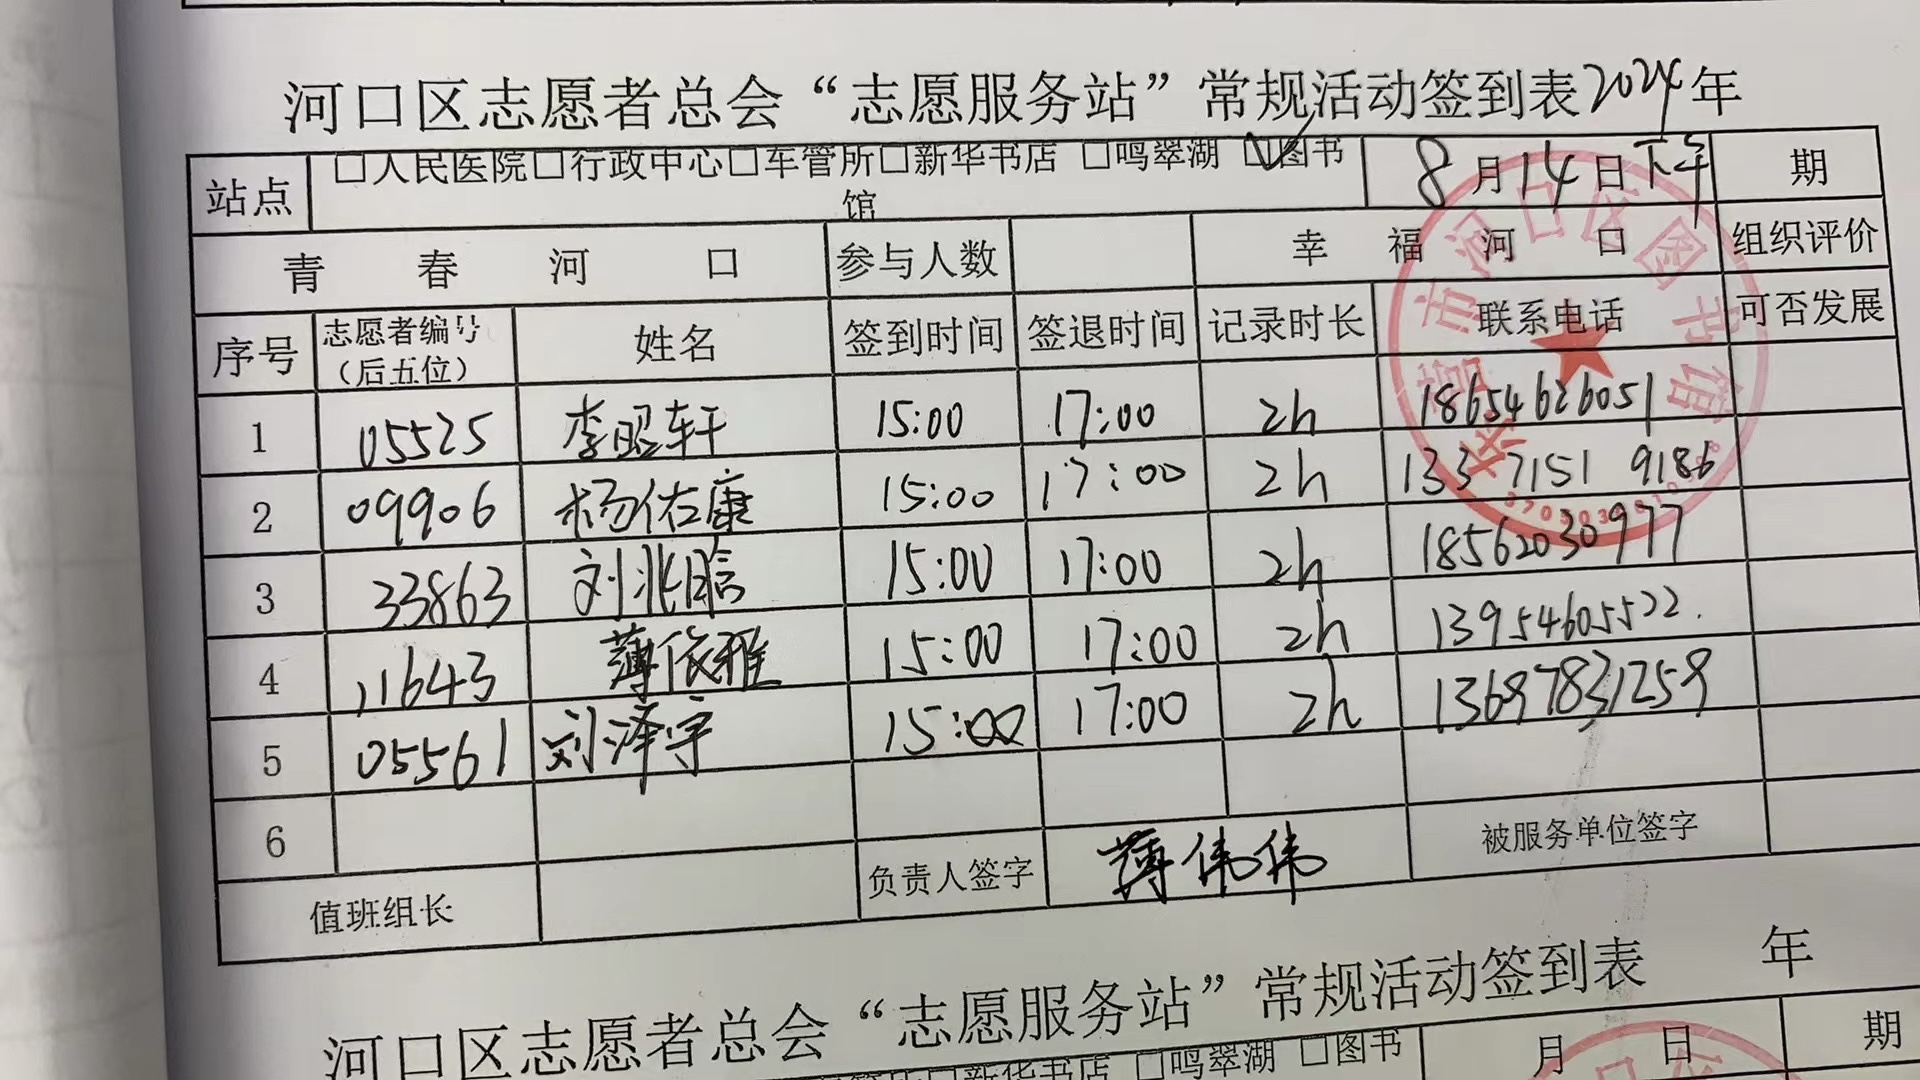 河口区志愿者总会“志愿服务站”常规活动签到表2024年
站点 □人民医院□行政中心□车管所□新华书店 □鸣翠湖 ☑图书馆 8月14日下午 期
青春河口 参与人数 幸福河口 组织评价
序号 志愿者编号（后五位） 姓名 签到时间 签退时间 记录时长 联系电话 可否发展
1 05525 李昭轩 15:00 17:00 2h 18654626051
2 09906 杨佑康 15:00 17:00 2h 133 7151 9186
3 33863 刘兆晗 15:00 17:00 2h 18562030977
4 11643 薄依雅 15:00 17:00 2h 13954605522.
5 05561 刘泽宇 15:00 17:00 2h 13697831259
6
值班组长 负责人签字 薄伟伟 被服务单位签字
河口区志愿者总会“志愿服务站”常规活动签到表 年
□新华书店 □鸣翠湖 □图书 月 日 期